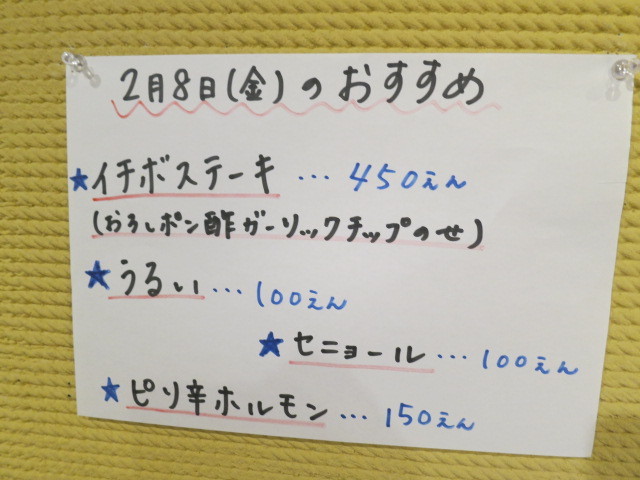 2月8日(金)のおすすめ
★イチボステーキ…450えん
(おろしポン酢ガーリックチップのせ)
★うるい…100えん
★セニョール…100えん
★ピリ辛ホルモン…150えん